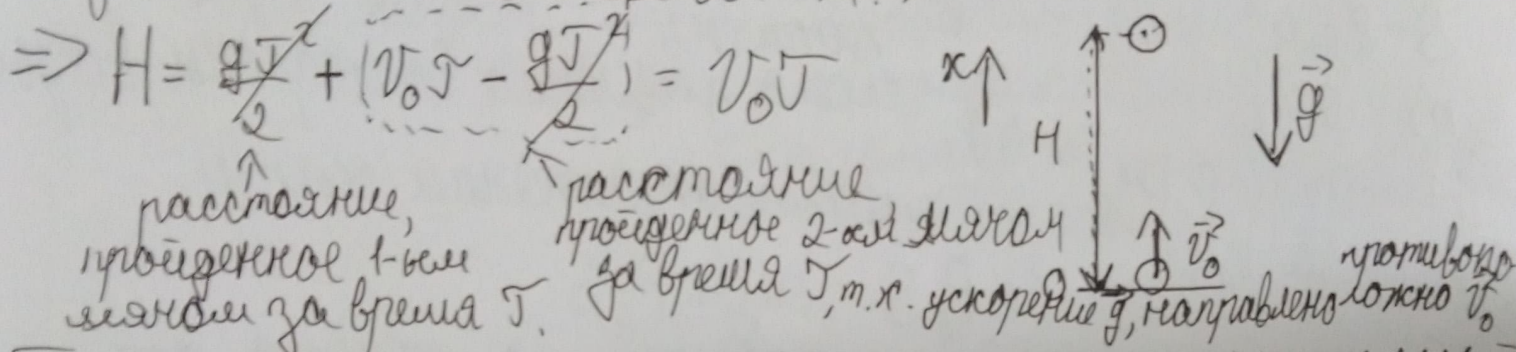 => H = gT²/2 + (V₀T - gT²/2) = V₀T
x
H
g
V₀
расстояние,
пройденное 1-ым
мячом за время T.
расстояние,
пройденное 2-ым мячом
за время T, т.к. ускорение g, направлено противоположно V₀